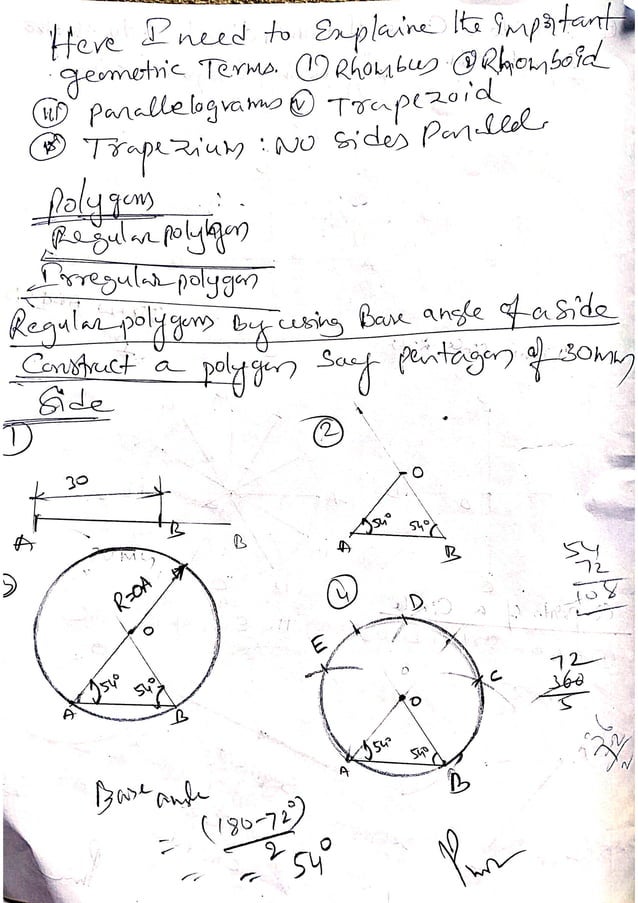 Here I need to Explaine the important
geometric Terms. (i) Rhombus (ii) Rhomboid
(iii) Parallelograms (iv) Trapezoid
Trapezium : NO Sides Parallel
Polygons :
Regular polygon
Irregular polygon
Regular polygons By using Base angle of a side
Construct a polygon Say pentagon of 30mm
Side
1)
2
30
A B B
O
54° 54°
A B
R=OA
O
54° 54°
A B
4
D
E
C
O
54° 54°
A B
54
72
108
72
360
5
Base angle
= (180-72°)
2
= = 54°